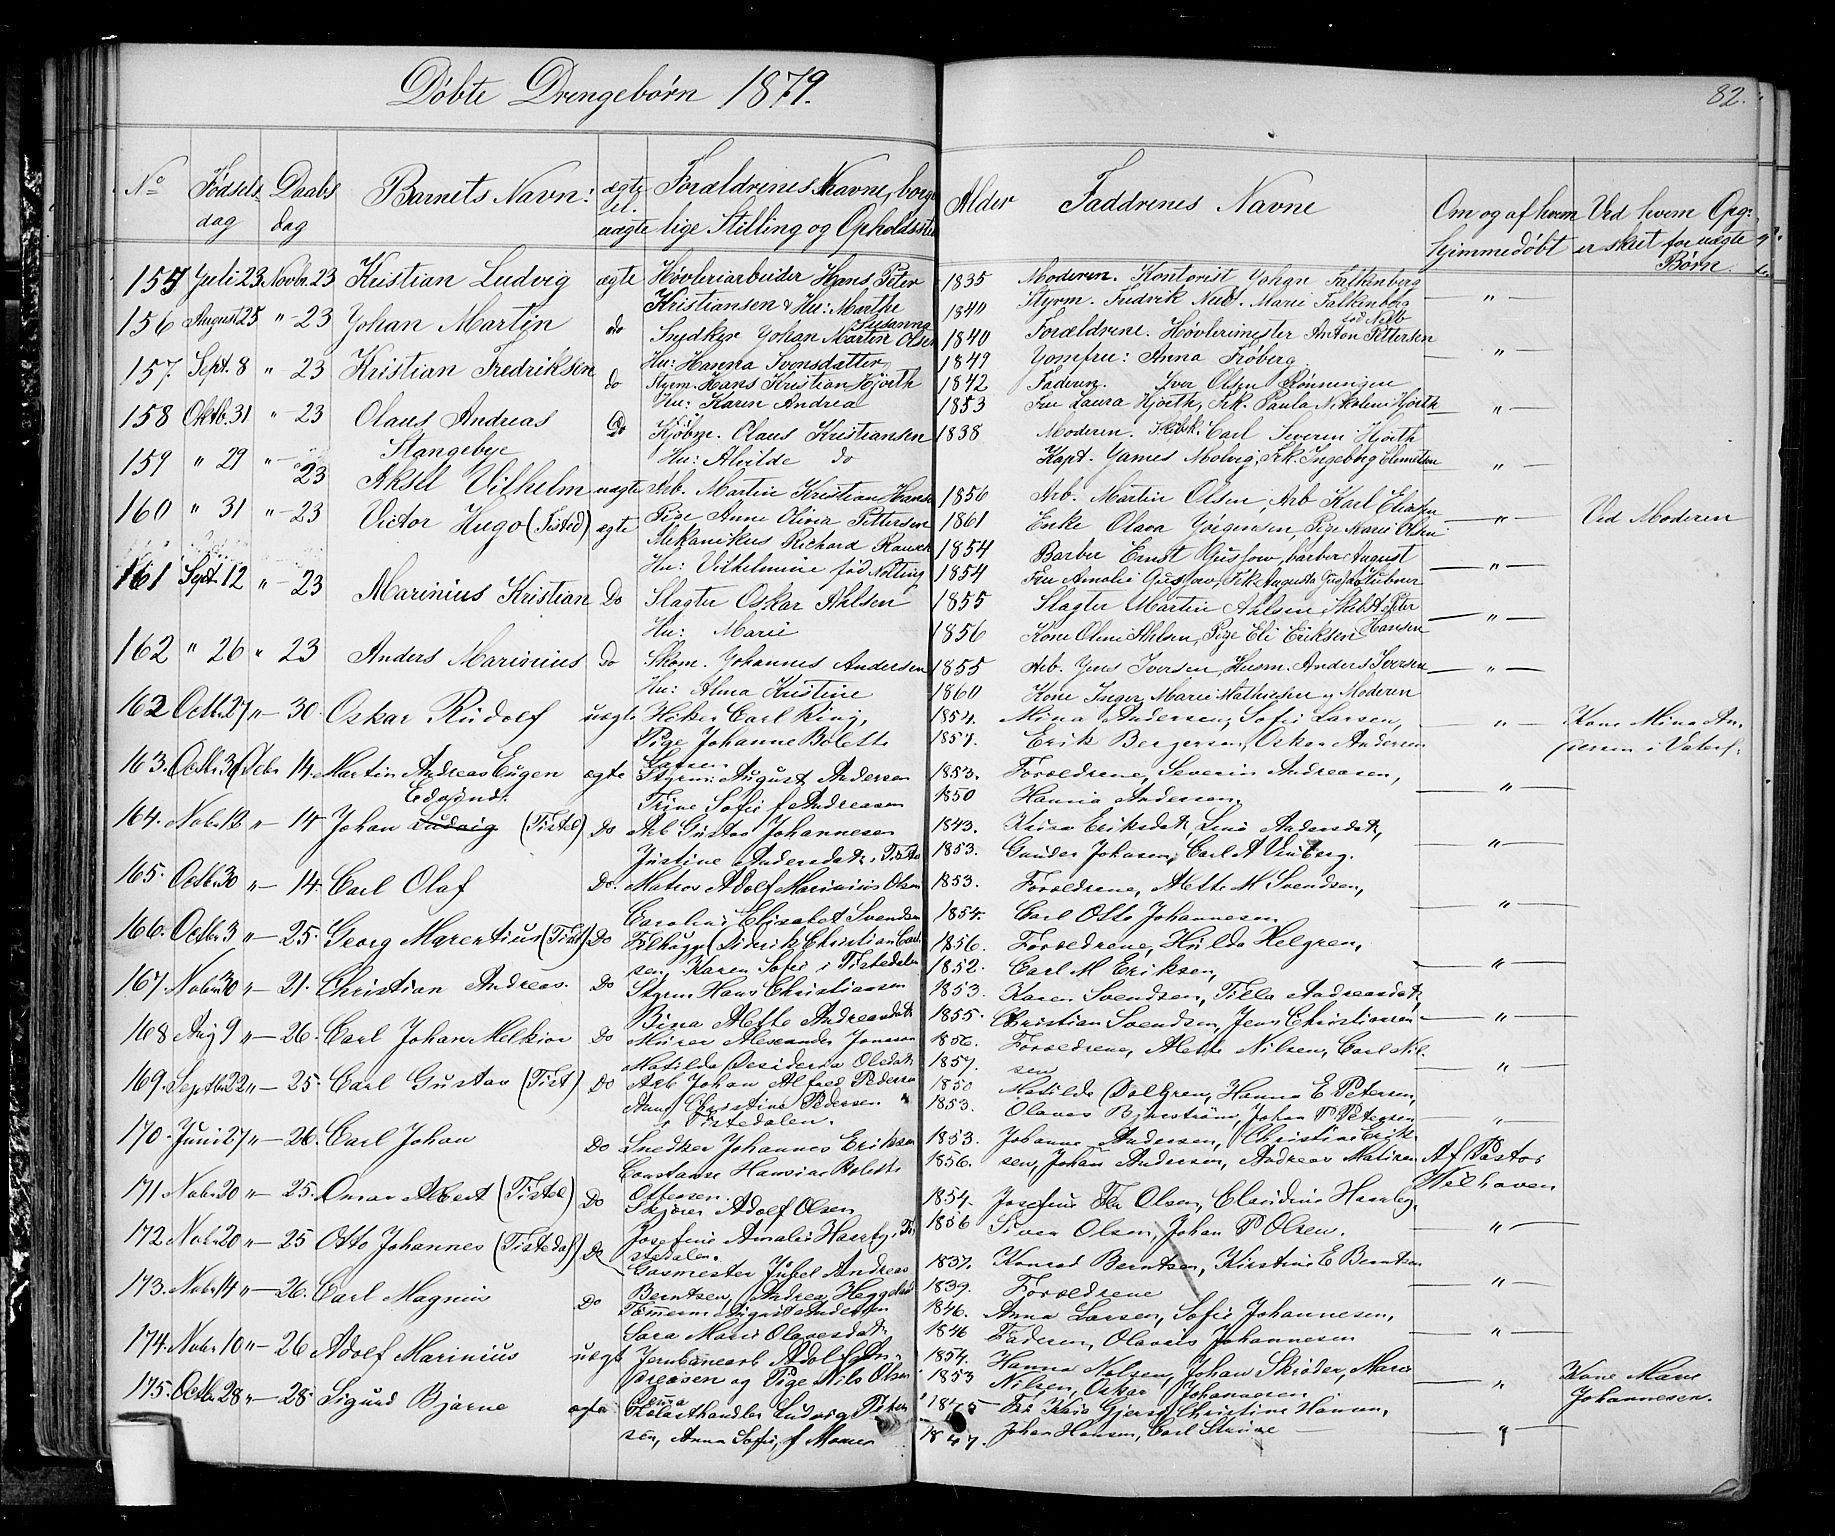 Døbte Drengebørn 1879.
82.
No Fødsels dag Daabs dag Barnets Navn: ægte el. uægte Forældrenes Navne, borger lige Stilling og Opholdssted Alder Faddrenes Navne Om og af hvem hjemmedøbt Ved hvem Opg: er skret for uægte Børn
155 Juli 23 Novbr. 23 Kristian Ludvig ægte Høvleriarbeider Hans Peter 1835 Moderen. Kontorist Johan Falkenberg
Kristiansen & Hu: Marthe Susanna 1840 Styrm. Fredrik Marie Falkenberg — " —
156 August 25 " 23 Johan Martin do Snedker Johan Martin Olsen 1840 Forældrene. Høvlerimester Anton Pettersen
Hu: Hanna Svensdatter 1849 Jomfru: Anna Frøberg — " —
157 Sept. 8 " 23 Kristian Fredriksen do Styrm. Hans Kristian Hjorth 1842 Faderen. Iver Olsen Rønningen
Hu: Karen Andrea 1853 Fru Laura Hjorth, Frk. Paula Nikoline Hjorth — " —
158 Oktb. 31 " - 23 Olaus Andreas Stangebye Do Kjøbm. Claus Kristiansen 1838 Moderen. Carl Severin Hjorth
Hu: Alvilde do Kapt. James Molvig, Frk. Ingeborg — " —
159 " 29 " - 23 Aksel Vilhelm uægte Arb. Martin Kristian Hansen 1856 Arb. Martin Olsen, Arb Karl Eliasen
Pige Anne Olivia Pettersen 1861 Enke Olava Jørgensen, Pige Marie Olsen — " — Ved Moderen
160 " 31 " - 23 Victor Hugo (Tisted) ægte Mekanikus Richard Rausch 1854 Barber Ernst Gustow, barber August
Hu: Vilhelmine fød Notting 1854 Fru Amalie Gustow, Frk Augusta — " —
161 Sept. 12 " - 23 Marinius Kristian Do Slagter Oskar Ahlsen 1855 Slagter Martin Ahlsen Peter Hansen
Hu: Marie 1856 Kone Oline Ahlsen, Pige Eli Eriksen — " —
162 " 26 " 23 Anders Marinius do Skom. Johannes Andersen 1855 Arb. Jens Iversen, Husm. Anders Iversen
Hu: Alma Kristine 1860 Kone Inger Marie Mathiesen, Moderen — " —
162 Octbr 27 " - 30. Oskar Rudolf uægte Høker Carl Ring, 1854. Mina Andersen, Sofie Larsen, " —
Pige Johanne Bolette Larsen 1857. Erik Bergersen, Oskar Andersen Kone Mina
163. Octbr 30 Dcbr 14. Martin Andreas Eugen Edmund. ægte Styrm: August Andersen 1853. Forældrene, Severin Andreasen,
Trine Sofie f Andreasen 1850 Hanna Andersen. — " —
164. Nobr 13 " - 14 Johan Ludvig (Tistd) Do Arb Gustav Johannesen 1843. Eriksdat, Line Andersdat,
Justine Andersdat i Tistd 1853. Gunder Johnsen, Carl A — " —
165. Octbr 30 " - 14. Carl Olaf Do. Matros Adolf Marinius Olsen 1853. Forældrene, Mette M Svendsen,
Caroline Elisabet Svendsen 1854. Carl Otto Johannesen — " —
166. Octbr 3 " - 25. Georg Marentius (Tist) Do Diderik Christian Carl- 1856. Forældrene, Hulda Helgren,
sen, Karen Sofie i Tistedalen 1852. Carl M Eriksen, — " —
167. Nobr 30 " - 21. Christian Andreas. Do Styrm Hans Christiansen 1853. Karen Svendsen, Tilla Andreasdat,
Bina Mette Andreasdat 1855. Christian Svendsen, Jens Christiansen — " —
168 Aug 9 " - 26. Carl Johan Melkior Do Murer Alexander Jonsson 1856. Forældrene, Mette Nilsen, Carl Nil-
Matilda Desideria Olsdat 1857. sen — " —
169. Septbr 22 " - 25. Carl Gustav (Tist) Do Arb Johan Alfred Pedersen 1850 Matilde Dalgren, Hanna E Petersen,
Anne Christine Pedersen i Tistedalen. 1853. Olaves Bjørstrøm, Johan P Petersen — " —
170. Juni 27 " - 26. Carl Johan Do Snedker Johannes Eriksen 1853. Johanne Andersen, Christine Erik-
Constanse Hansine Bolette Ottesen. 1856. sen, Johan Andersen, Andreas Af Pastor Wilhaven
171 Nobr 20 " - 25. Omar Albert (Tistd) Do Skjører Adolf Olsen 1854. Josefine Fr Olsen, Claudine Harrby,
Josefine Amalie Harrby i Tistedalen. 1856 Siver Olsen, Johan P Olsen. — " —
172. Nobr 20 " - 25 Otto Johannes (Tistedal) Do Gasmester Jubel Andreas 1837. Konrad Berntsen, Kirstine E Berntsen
Berntsen, Andrea 1839. Forældrene — " —
173. Nobr 14 " - 26. Carl Magnus Do Tømmerm: August Andersen 1846. Anna Larsen, Sofie Johannesen,
Sara Marie Olavesdat 1846 Faderen, Olavus Johannesen — " —
174. Nobr 10 " - 26 Adolf Marinius uægt Jernbanearb Adolf An- 1854. Hanna Nilsen, Johan Skrøder, Maren
dreasen og Pige Nils Olsen 1853 Nilsen, Oskar Johannesen " — Kone Marie Johannesen.
175. Octbr 28 " - 28. Sigurd Bjarne ægte Ludvig Peter- Fr Kaia Gjerse, Christine Hansen,
sen, Anna Sofie, f 1847. Johan Hansen, Carl —